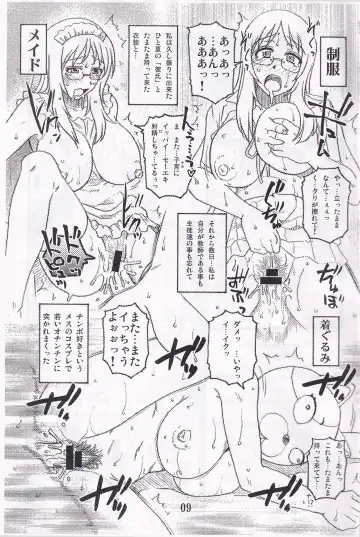 制服
あっあっ
…あんっ
あああ
ああっ！
やっ…立ったまま
なんて…ええっ
く…クリが擦れて！
私は久し振りに出来た
ひと夏の「彼氏」と
たまたま持って来た
衣装と…
メイド
ま また…子宮に
イッパイ…セーエキ
射精しちゃ…てるぅ
それから数日…私は
自分が教師である事も
生徒達の事も忘れて
着ぐるみ
ダメッ…いやっ
アイク
あっ…あんっ
これも…たまたま
持って来てて…
また…また
イっちゃう
よぉぉっ！
チンポ好きという
メスのコスプレで
若いオチンチンに
突かれまくった
09